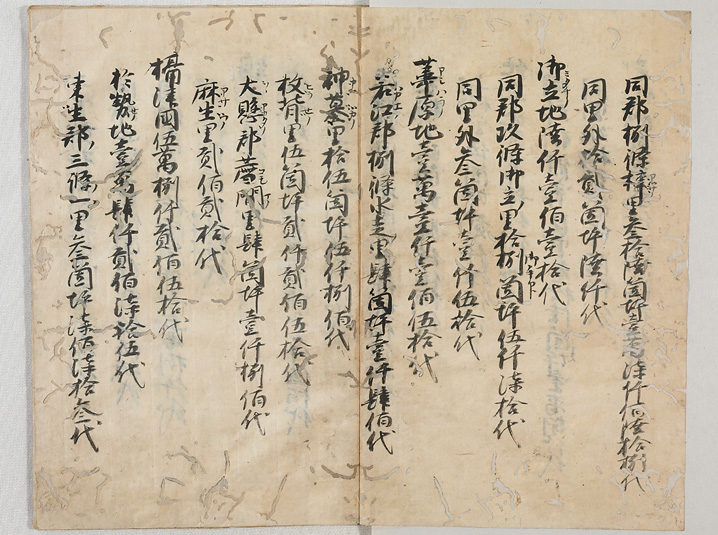 同郡捌條樟里叁拾陸箇坪壹萬柒仟佰陸拾捌代
同里外拾貳箇坪陸仟代
御立地陸仟壹佰壹拾代
同郡玖條御立里拾捌箇坪伍仟柒拾代
同里外叁箇坪壹仟伍拾代
葦原地壹萬壹仟壹佰伍拾代
若江郡捌條水走里肆箇坪壹仟肆佰代
神墓里拾伍箇坪伍仟捌佰代
枚背里伍箇坪貳仟貳佰伍拾代
大縣郡門里肆箇坪壹仟捌佰代
麻生里貳佰貳拾代
攝津國伍萬捌仟貳佰伍拾代
於勢地壹萬肆仟貳佰柒拾伍代
東生郡三條一里叁箇坪柒佰柒拾叁代